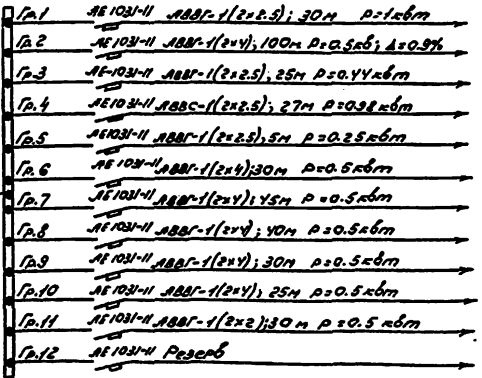 Гр.1 АЕ1031-11 АВВГ-1(2х2.5); 30м Р=1квт
Гр.2 АЕ1031-11 АВВГ-1(2х4); 100м Р=0.5кв; Δ=0.9%
Гр.3 АЕ-1031-11 АВВГ-1(2х2.5); 25м Р=0.44квт
Гр.4 АЕ1031-11 АВВС-1(2х2.5); 27м Р=0.98квт
Гр.5 АЕ1031-11 АВВГ-1(2х2.5); 5м Р=0.25квт
Гр.6 АЕ1031-11 АВВГ-1(2х4); 30м Р=0.5квт
Гр.7 АЕ1031-11 АВВГ-1(2х4); 45м Р=0.5квт
Гр.8 АЕ1031-11 АВВГ-1(2х4); 40м Р=0.5квт
Гр.9 АЕ1031-11 АВВГ-1(2х4); 30м Р=0.5квт
Гр.10 АЕ1031-11 АВВГ-1(2х4); 25м Р=0.5квт
Гр.11 АЕ1031-11 АВВГ-1(2х2); 30м Р=0.5квт
Гр.12 АЕ1031-11 Резерв